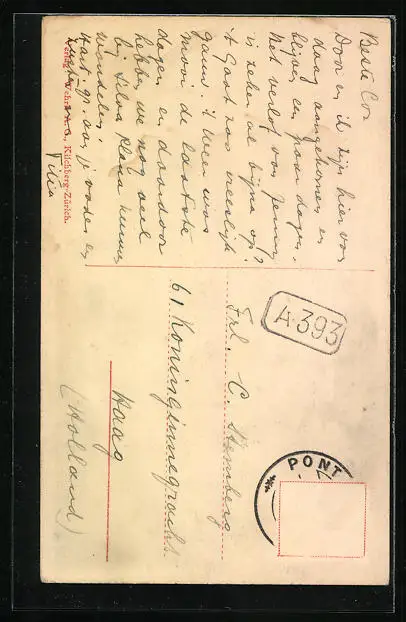 Beste Cor.
Door en ik zijn hier van
daag aangekomen en
blijven een paar dagen.
Het verlof van Jenny
is zeker al bijna op?
't Gaat zoo vreeselijk
gauw. 't Weer was
mooi de laatste
dagen en daardoor
hebben we nog veel
bij Silva Plana kunnen
wandelen.
Hart. gr. aan je vader en
Verlag Wehrli A.-G., Kilchberg-Zürich.
A·393
PONT
Frl. C. Stemberg
61 Koninginnegracht.
Haag
(Holland)